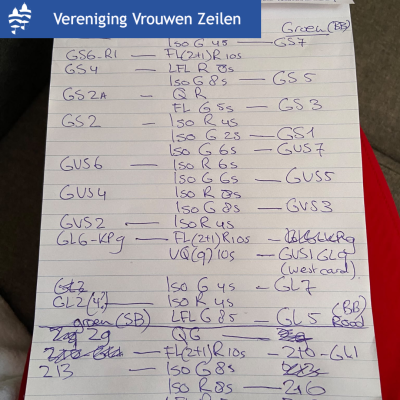 Vereniging Vrouwen Zeilen
Groen (BB)
Iso G 4s — GS7
GS6-R1 — FL(2+1)R 10s
GS4 — LFL R 8s
Iso G 8s — GS5
GS2A — Q R
FL G 5s — GS3
GS2 — Iso R 4s
Iso G 2s — GS1
Iso G 6s — GUS7
GUS6 — Iso R 6s
Iso G 6s — GUS5
GUS4 Iso R 8s
Iso G 8s — GUS3
GUS2 — Iso R 4s
GL6-KPg — FL(2+1)R10s
VQ(9) 10s — GUS1 GL9
(West card.)
Iso G 4s — GL7
GL2 (4?) Iso R 4s
LFL G 8s — GL5 (BB)
groen (SB) Rood
2g QG
FL(2+1)R10s — 210-GL1
213 — Iso G 8s
Iso R 8s — 216